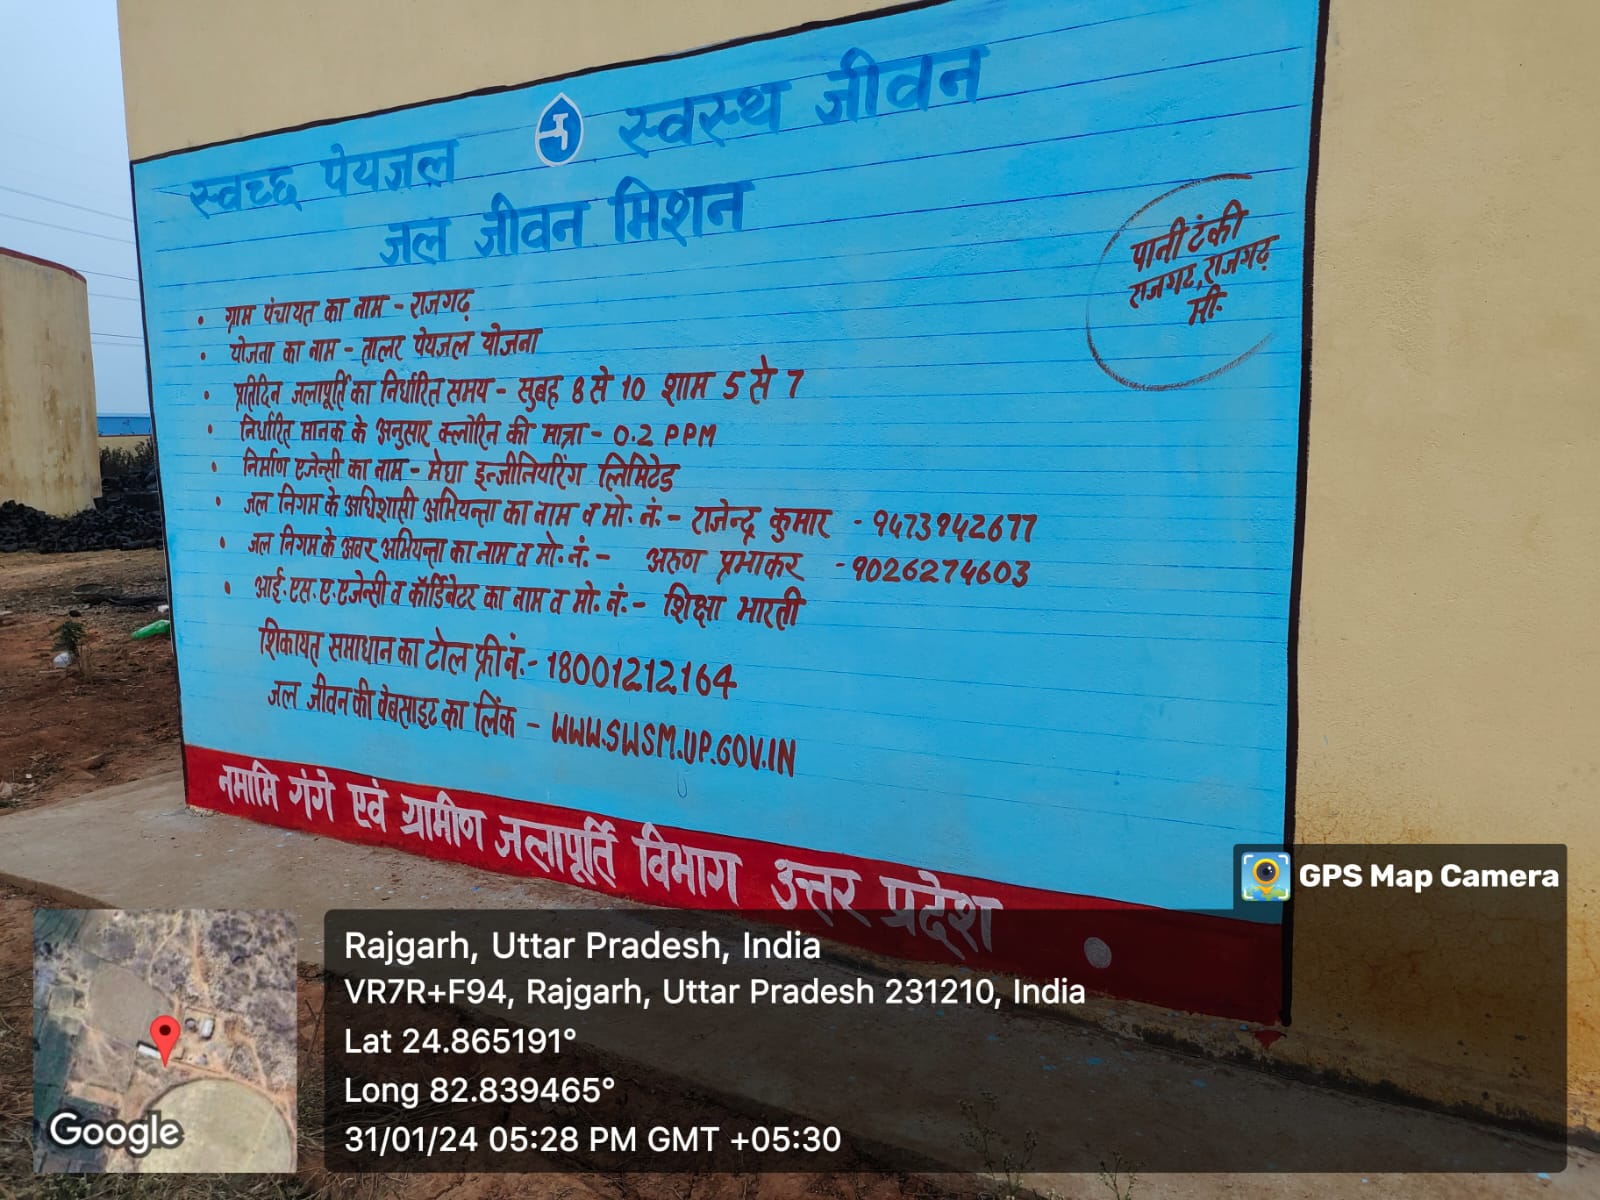 स्वच्छ पेयजल स्वस्थ जीवन
जल जीवन मिशन
पानी टंकी
राजगढ, राजगढ़
मी.
• ग्राम पंचायत का नाम - राजगढ़
• योजना का नाम - तालर पेयजल योजना
• प्रतिदिन जलापूर्ति का निर्धारित समय - सुबह 8 से 10 शाम 5 से 7
• निर्धारित मानक के अनुसार क्लोरिन की मात्रा - 0.2 PPM
• निर्माण एजेन्सी का नाम - मेघा इन्जीनियरिंग लिमिटेड
• जल निगम के अधिशासी अभियन्ता का नाम व मो. नं. - राजेन्द्र कुमार - 9473942677
• जल निगम के अवर अभियन्ता का नाम व मो. नं. - अरुण प्रभाकर - 9026274603
• आई. एस. ए. एजेन्सी व कॉर्डिनेटर का नाम व मो. नं. - शिक्षा भारती
शिकायत समाधान का टोल फ्री नं. - 18001212164
जल जीवन की वेबसाइट का लिंक - WWW.SWSM.UP.GOV.IN
नमामि गंगे एवं ग्रामीण जलापूर्ति विभाग उत्तर प्रदेश
GPS Map Camera
Rajgarh, Uttar Pradesh, India
VR7R+F94, Rajgarh, Uttar Pradesh 231210, India
Lat 24.865191°
Long 82.839465°
31/01/24 05:28 PM GMT +05:30
Google